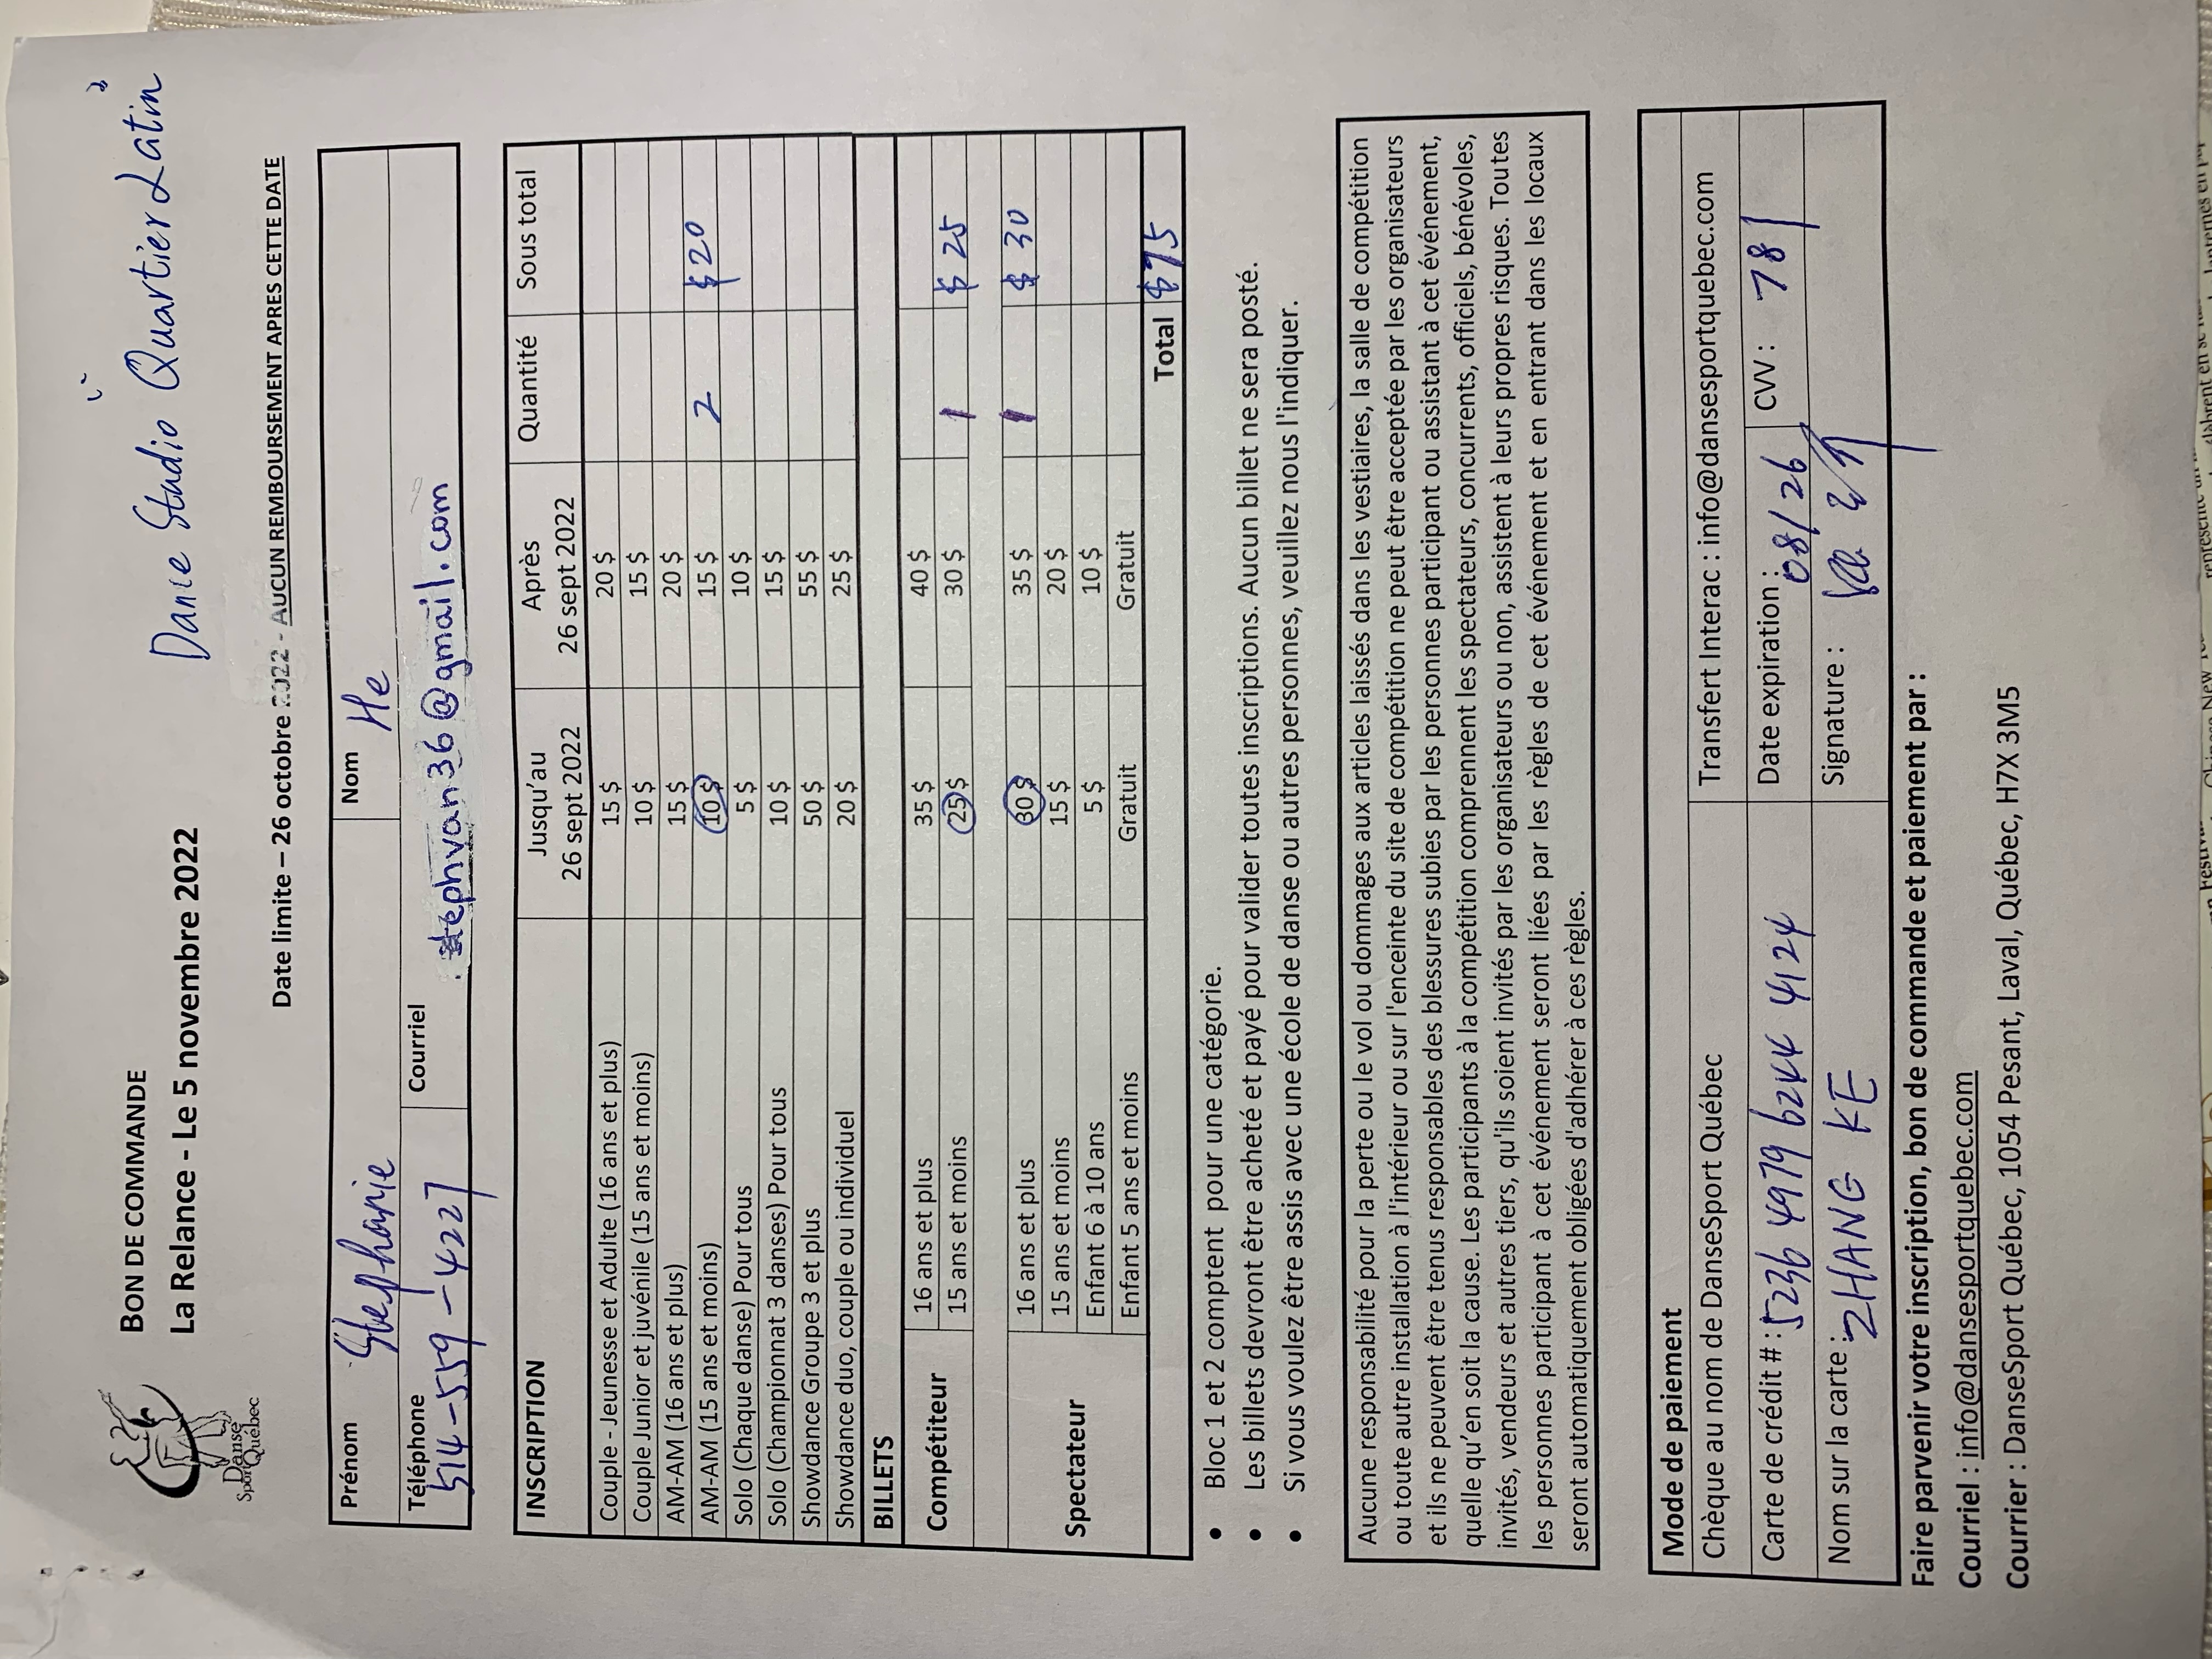 BON DE COMMANDE
La Relance - Le 5 novembre 2022
Dance Studio Quartier Latin
Danse
Sport Québec
Date limite – 26 octobre 2022 - AUCUN REMBOURSEMENT APRES CETTE DATE
Prénom Stephanie Nom He
Téléphone 514-559-4227 Courriel stephvan36@gmail.com
INSCRIPTION Jusqu’au 26 sept 2022 Après 26 sept 2022 Quantité Sous total
Couple - Jeunesse et Adulte (16 ans et plus) 15 $ 20 $
Couple Junior et juvénile (15 ans et moins) 10 $ 15 $
AM-AM (16 ans et plus) 15 $ 20 $
AM-AM (15 ans et moins) 10 $ 15 $ 2 $20
Solo (Chaque danse) Pour tous 5 $ 10 $
Solo (Championnat 3 danses) Pour tous 10 $ 15 $
Showdance Groupe 3 et plus 50 $ 55 $
Showdance duo, couple ou individuel 20 $ 25 $
BILLETS
Compétiteur
16 ans et plus 35 $ 40 $
15 ans et moins 25 $ 30 $ 1 $ 25
Spectateur
16 ans et plus 30 $ 35 $ 1 $ 30
15 ans et moins 15 $ 20 $
Enfant 6 à 10 ans 5 $ 10 $
Enfant 5 ans et moins Gratuit Gratuit
Total $75
• Bloc 1 et 2 comptent pour une catégorie.
• Les billets devront être acheté et payé pour valider toutes inscriptions. Aucun billet ne sera posté.
• Si vous voulez être assis avec une école de danse ou autres personnes, veuillez nous l'indiquer.
Aucune responsabilité pour la perte ou le vol ou dommages aux articles laissés dans les vestiaires, la salle de compétition
ou toute autre installation à l'intérieur ou sur l'enceinte du site de compétition ne peut être acceptée par les organisateurs
et ils ne peuvent être tenus responsables des blessures subies par les personnes participant ou assistant à cet événement,
quelle qu’en soit la cause. Les participants à la compétition comprennent les spectateurs, concurrents, officiels, bénévoles,
invités, vendeurs et autres tiers, qu'ils soient invités par les organisateurs ou non, assistent à leurs propres risques. Toutes
les personnes participant à cet événement seront liées par les règles de cet événement et en entrant dans les locaux
seront automatiquement obligées d'adhérer à ces règles.
Mode de paiement
Chèque au nom de DanseSport Québec Transfert Interac : info@dansesportquebec.com
Carte de crédit # : Date expiration : CVV :
Nom sur la carte : ZHANG KE Signature :
Faire parvenir votre inscription, bon de commande et paiement par :
Courriel : info@dansesportquebec.com
Courrier : DanseSport Québec, 1054 Pesant, Laval, Québec, H7X 3M5